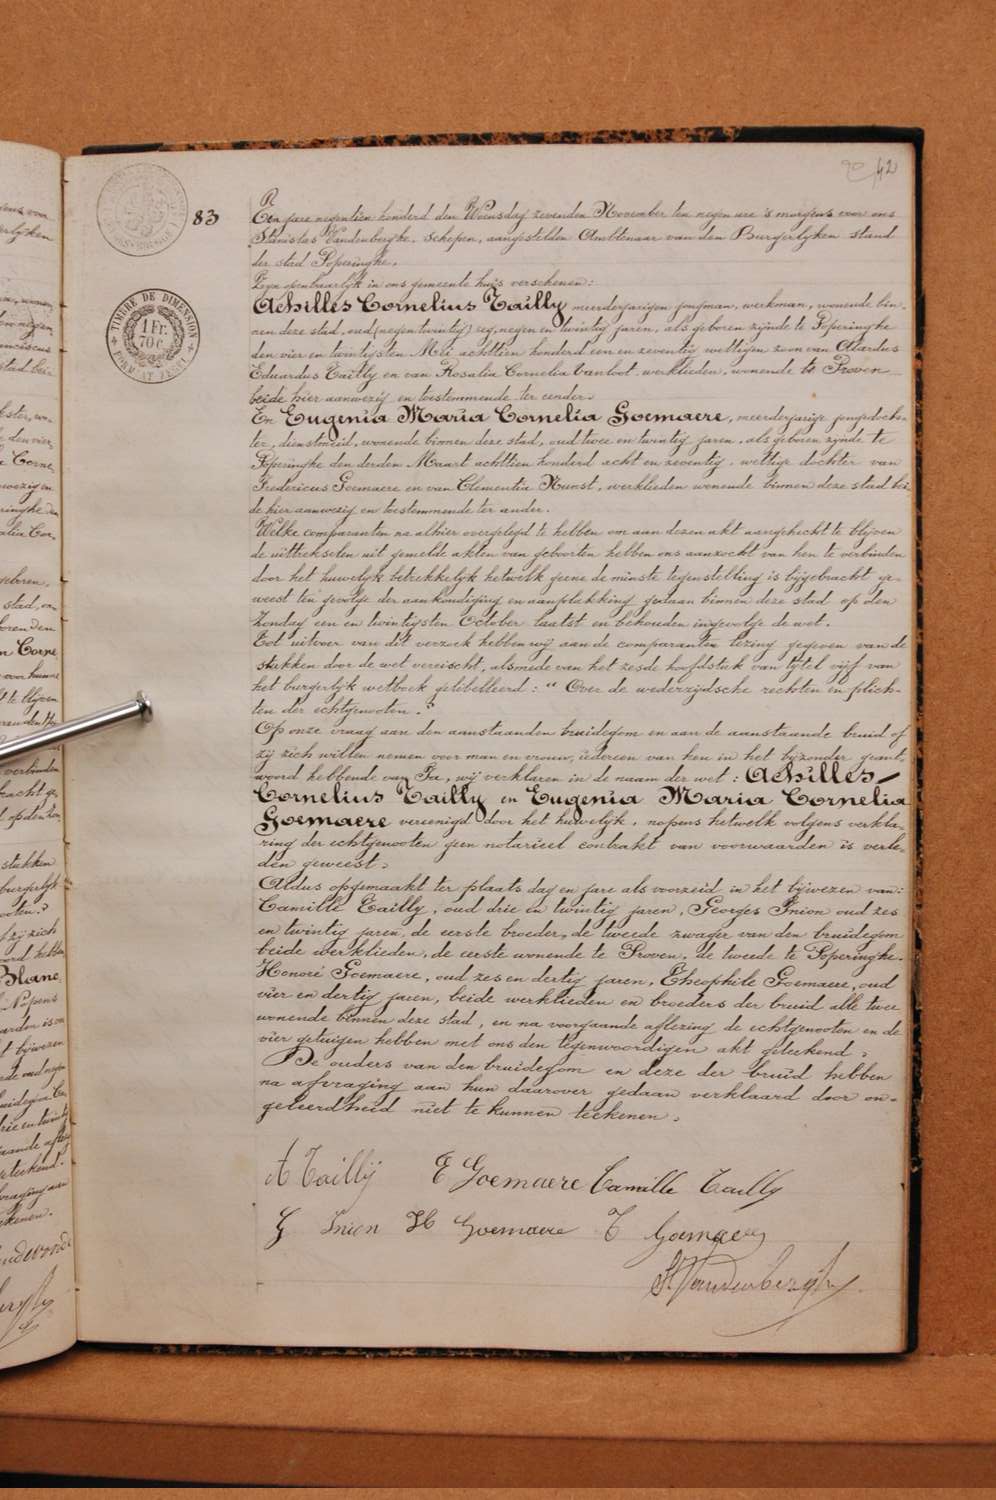 42
83
Een jare negentien honderd den Woensdag zevenden November ten negen ure 's morgens voor ons
Stanislas Vandenberghe, Schepen, aangestelden Ambtenaar van den Burgerlyken stand
der stad Poperinghe.
Zyn openbaarlyk in ons gemeente huis verschenen:
Achilles Cornelius Tailly meerderjarigen jongman, werkman, wonende bin-
nen deze stad, oud (negentwintig) zeg, negen en twintig jaren, als geboren zynde te Poperinghe
den vier en twintigsten Mei achttien honderd een en zeventig wettigen zoon van Alardus
Eduardus Tailly en van Rosalia Cornelia Vanloot werklieden, wonende te Proven
beide hier aanwezig en toestemmende ter eender.
En Eugenia Maria Cornelia Goemaere, meerderjarige jongedoch-
ter, dienstmeid, wonende binnen deze stad, oud twee en twintig jaren, als geboren zynde te
Poperinghe den derden Maart achttien honderd acht en zeventig, wettige dochter van
Fredericus Goemaere en van Clementia Nunst, werklieden wonende binnen deze stad bei-
de hier aanwezig en toestemmende ter ander.
Welke comparanten na alhier overgelegd te hebben om aan dezen akt aangehecht te blyven
de uittrekselen uit gemelde akten van geboorten hebben ons aanzocht van hen te verbinden
door het huwelyk betrekkelyk hetwelk geene de minste tegenstelling is bygebracht ge-
weest ten gevolge der aankondiging en aanplakking gedaan binnen deze stad op den
Zondag een en twintigsten October laatst en behouden ingevolge de wet.
Tot uitvoer van dit verzoek hebben wij aan de comparanten lezing gegeven van de
stukken door de wet vereischt, alsmede van het zesde hoofdstuk van tytel vijf van
het burgerlyk wetboek getibelleerd: "Over de wederzydsche rechten en plich-
ten der echtgenooten."
Op onze vraag aan den aanstaanden bruidegom en aan de aanstaande bruid of
zij zich willen nemen voor man en vrouw, iedereen van hen in het byzonder geant-
woord hebbende van Ja, wij verklaren in de naam der wet: Achilles
Cornelius Tailly en Eugenia Maria Cornelia
Goemaere vereenigd door het huwelyk, nopens hetwelk volgens verkla-
ring der echtgenooten geen notarieel contrakt van voorwaarden is verle-
den geweest.
Aldus opgemaakt ter plaats dag en jare als voorzeid in het bywezen van:
Camille Tailly, oud drie en twintig jaren, Georges Inion oud zes
en twintig jaren, de eerste broeder, de tweede zwager van den bruidegom
beide werklieden, de eerste wonende te Proven, de tweede te Poperinghe.
Honoré Goemaere, oud zes en dertig jaren, Theophile Goemaere, oud
vier en dertig jaren, beide werklieden en broeders der bruid alle twee
wonende binnen deze stad, en na voorgaande aflezing de echtgenooten en de
vier getuigen hebben met ons den tegenwoordigen akt geteekend.
De ouders van den bruidegom en deze der bruid hebben
na afvraging aan hun daarover gedaan verklaard door on-
geleerdheid niet te kunnen teekenen.
A Tailly E Goemaere Camille Tailly
G Inion H Goemaere T Goemaere
St. Vandenberghe
TIMBRE DE DIMENSION
1 Fr.
70 c.